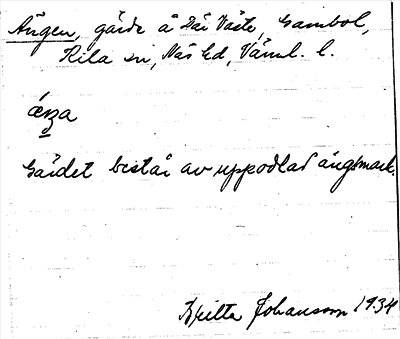 Ängen, gärde å Där Väste, Gambol,
Kila sn, Näs hd, Värml. l.
ǽŋa
Gärdet består av uppodlad ängsmark.
Britta Johansson 1934